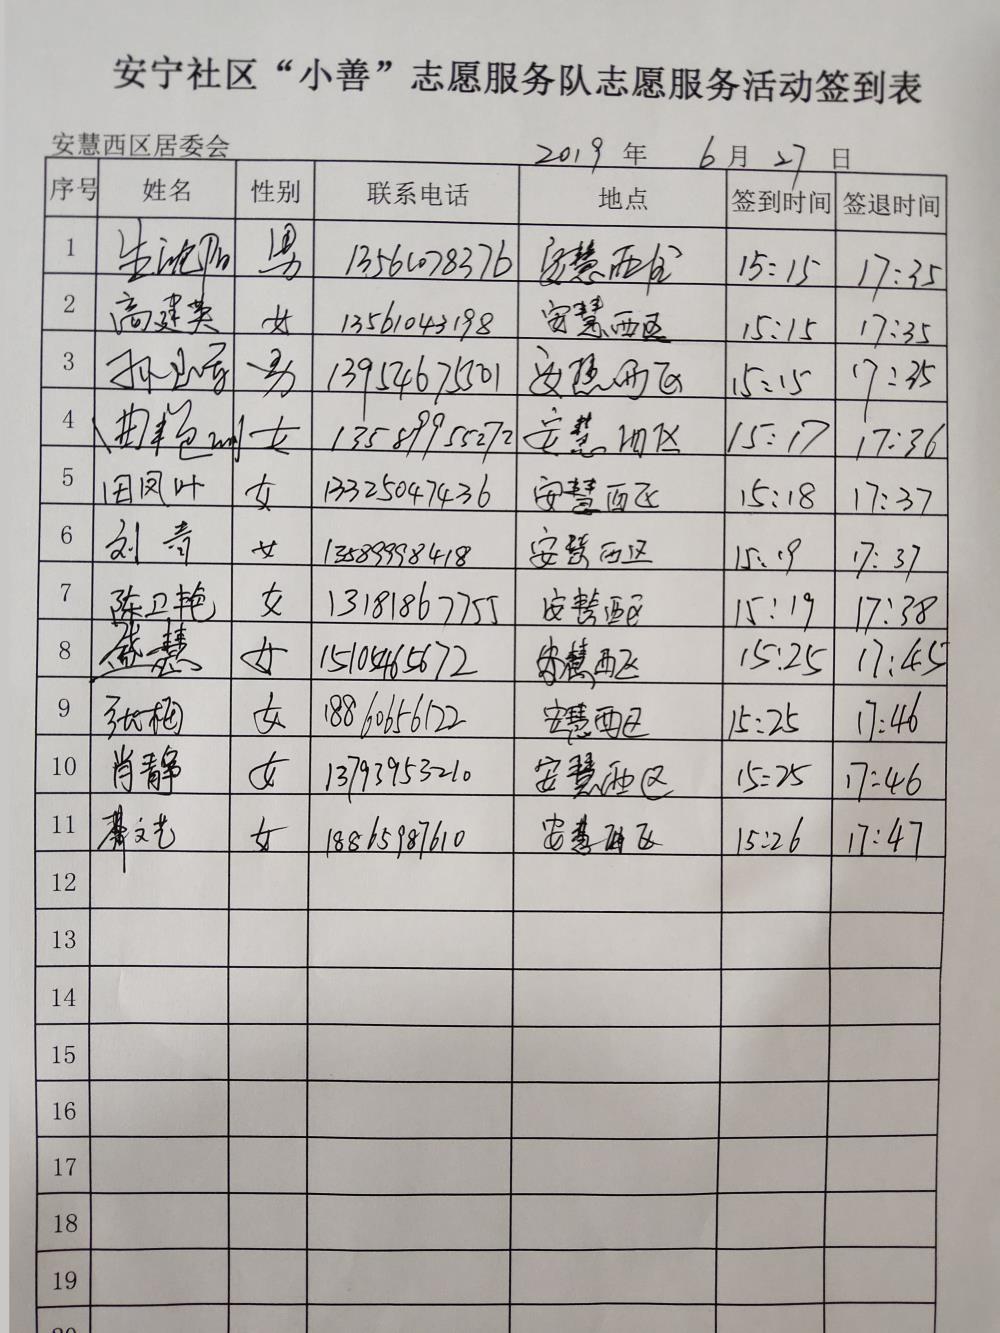 安宁社区“小善”志愿服务队志愿服务活动签到表
安慧西区居委会 2019 年 6 月 27 日
序号 姓名 性别 联系电话 地点 签到时间 签退时间
1 男 13561078376 安慧西区 15:15 17:35
2 高建英 女 13561043198 安慧西区 15:15 17:35
3 男 13954675501 安慧西区 15:15 17:35
4 女 13589955272 安慧西区 15:17 17:36
5 田凤叶 女 13325047436 安慧西区 15:18 17:37
6 刘青 女 13589998418 安慧西区 15:19 17:37
7 陈卫艳 女 13181867755 安慧西区 15:19 17:38
8 盛慧 女 15105465672 安慧西区 15:25 17:45
9 张梅 女 18860656122 安慧西区 15:25 17:46
10 肖静 女 13793953210 安慧西区 15:25 17:46
11 文艺 女 18865987610 安慧西区 15:26 17:47
12
13
14
15
16
17
18
19